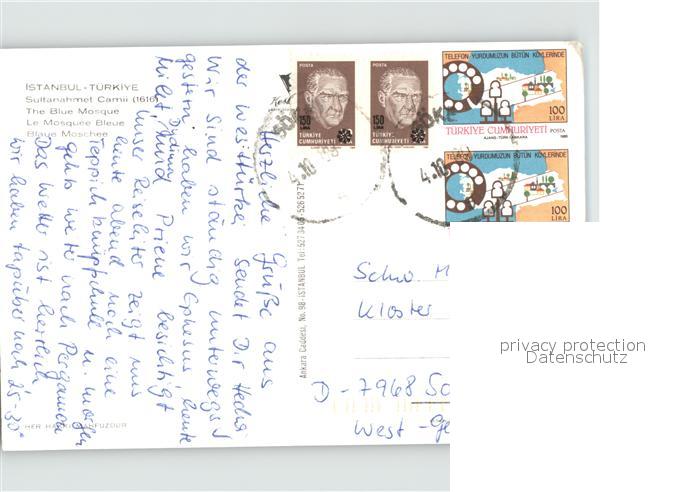 İSTANBUL - TÜRKİYE
Sultanahmet Camii (1616)
The Blue Mosque
Le Mosquée Bleue
Blaue Moschee
Herzliche Grüße aus
der Westtürkei sendet Dir Hedwig
Wir sind ständig unterwegs!
gestern haben wir Ephesus heute
Milet, und Priene besichtigt
Unser Reiseleiter zeigt uns
heute abend noch eine
Teppichknüpfschule u. morgen
gehts weiter nach Pergamon
Das Wetter ist herrlich
wir haben tagsüber noch 25-30°
HER HAKKI MAHFUZDUR
Ankara Caddesi, No. 98 - İSTANBUL Tel: 5265271
POSTA
150
TÜRKİYE
CUMHURİYETİ
POSTA
150
TÜRKİYE
CUMHURİYETİ
SÖKE
4.10
SÖKE
4.10
TELEFON YURDUMUZUN BÜTÜN KÖYLERİNDE
100
LİRA
TÜRKİYE CUMHURİYETİ POSTA
AJANS-TÜRK/ANKARA
TELEFON YURDUMUZUN BÜTÜN KÖYLERİNDE
100
LİRA
Schw. M
Kloster
D-7968
West-Ge
privacy protection
Datenschutz